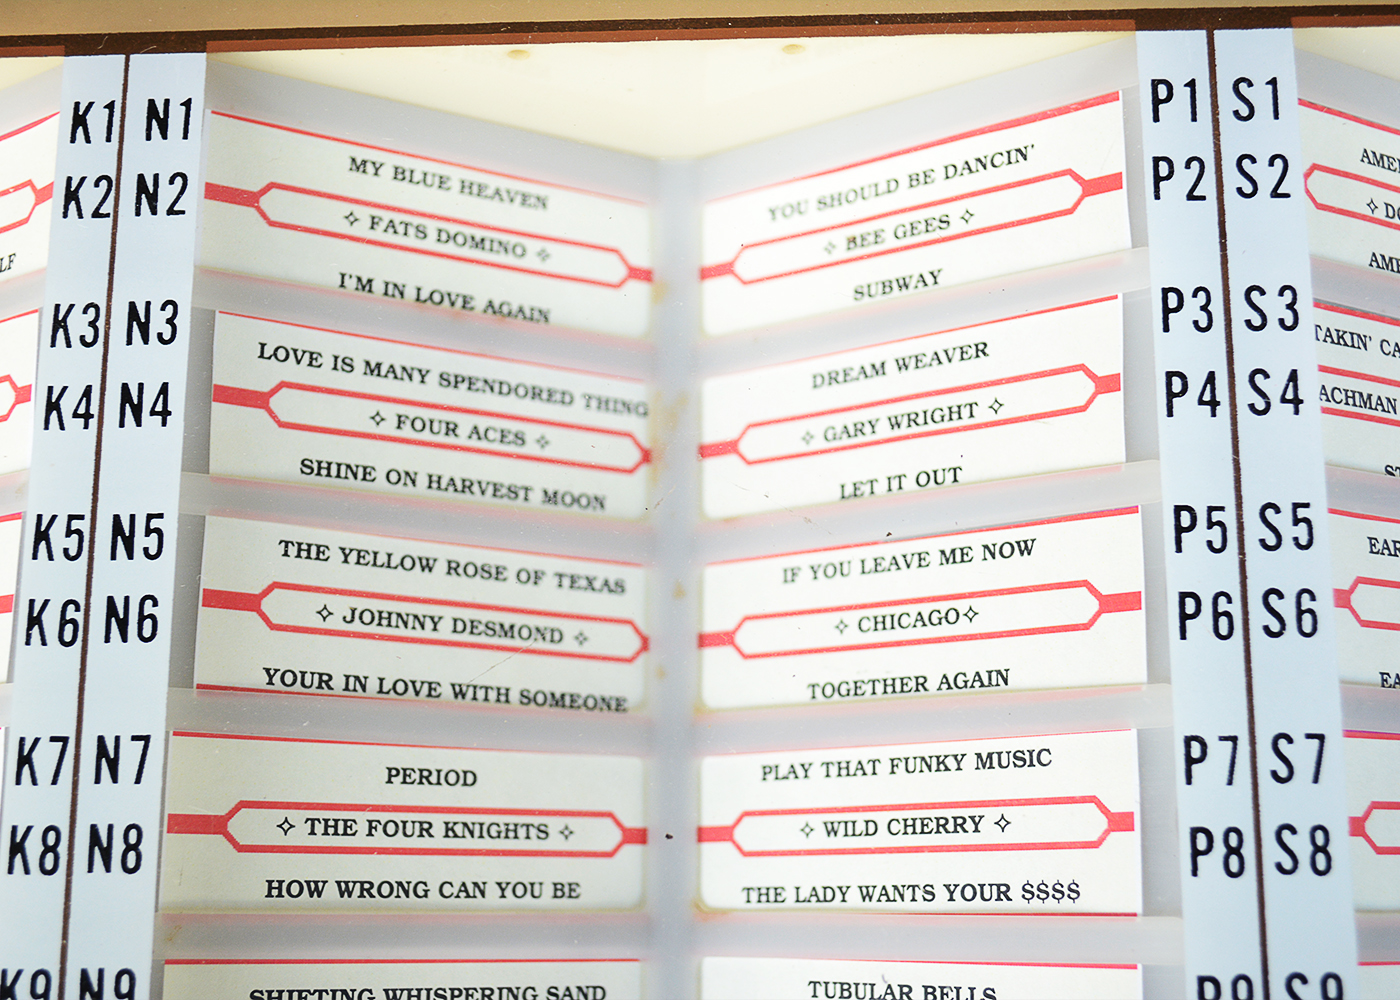 K1 N1
K2 N2
K3 N3
K4 N4
K5 N5
K6 N6
K7 N7
K8 N8
K9 N9
MY BLUE HEAVEN
✧ FATS DOMINO ✧
I'M IN LOVE AGAIN
LOVE IS MANY SPENDORED THING
✧ FOUR ACES ✧
SHINE ON HARVEST MOON
THE YELLOW ROSE OF TEXAS
✧ JOHNNY DESMOND ✧
YOUR IN LOVE WITH SOMEONE
PERIOD
✧ THE FOUR KNIGHTS ✧
HOW WRONG CAN YOU BE
SHIFTING WHISPERING SAND
YOU SHOULD BE DANCIN'
✧ BEE GEES ✧
SUBWAY
DREAM WEAVER
✧ GARY WRIGHT ✧
LET IT OUT
IF YOU LEAVE ME NOW
✧ CHICAGO✧
TOGETHER AGAIN
PLAY THAT FUNKY MUSIC
✧ WILD CHERRY ✧
THE LADY WANTS YOUR $$$$
TUBULAR BELLS
P1 S1
P2 S2
P3 S3
P4 S4
P5 S5
P6 S6
P7 S7
P8 S8
P9 S9
TAKIN' CA
ACHMAN